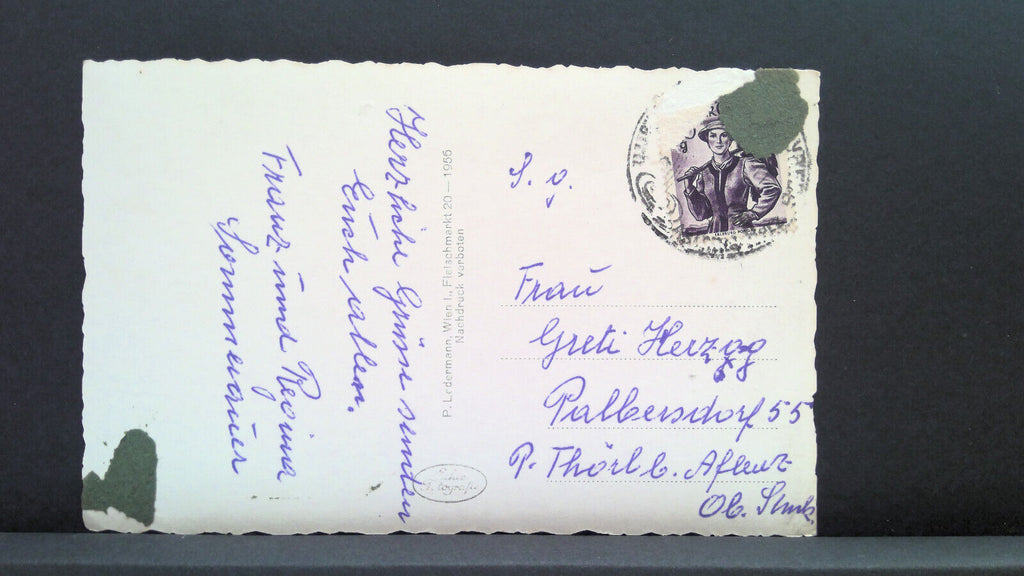 Herzliche Grüsse senden
Euch allen.
Franz und Regina
P. Ledermann, Wien I., Fleischmarkt 20 — 1955
Nachdruck verboten
Echte
Fotografie
Frau
Greti Herzog
Palbersdorf 55
P. Thörl b. Aflenz
Ob. Stmk